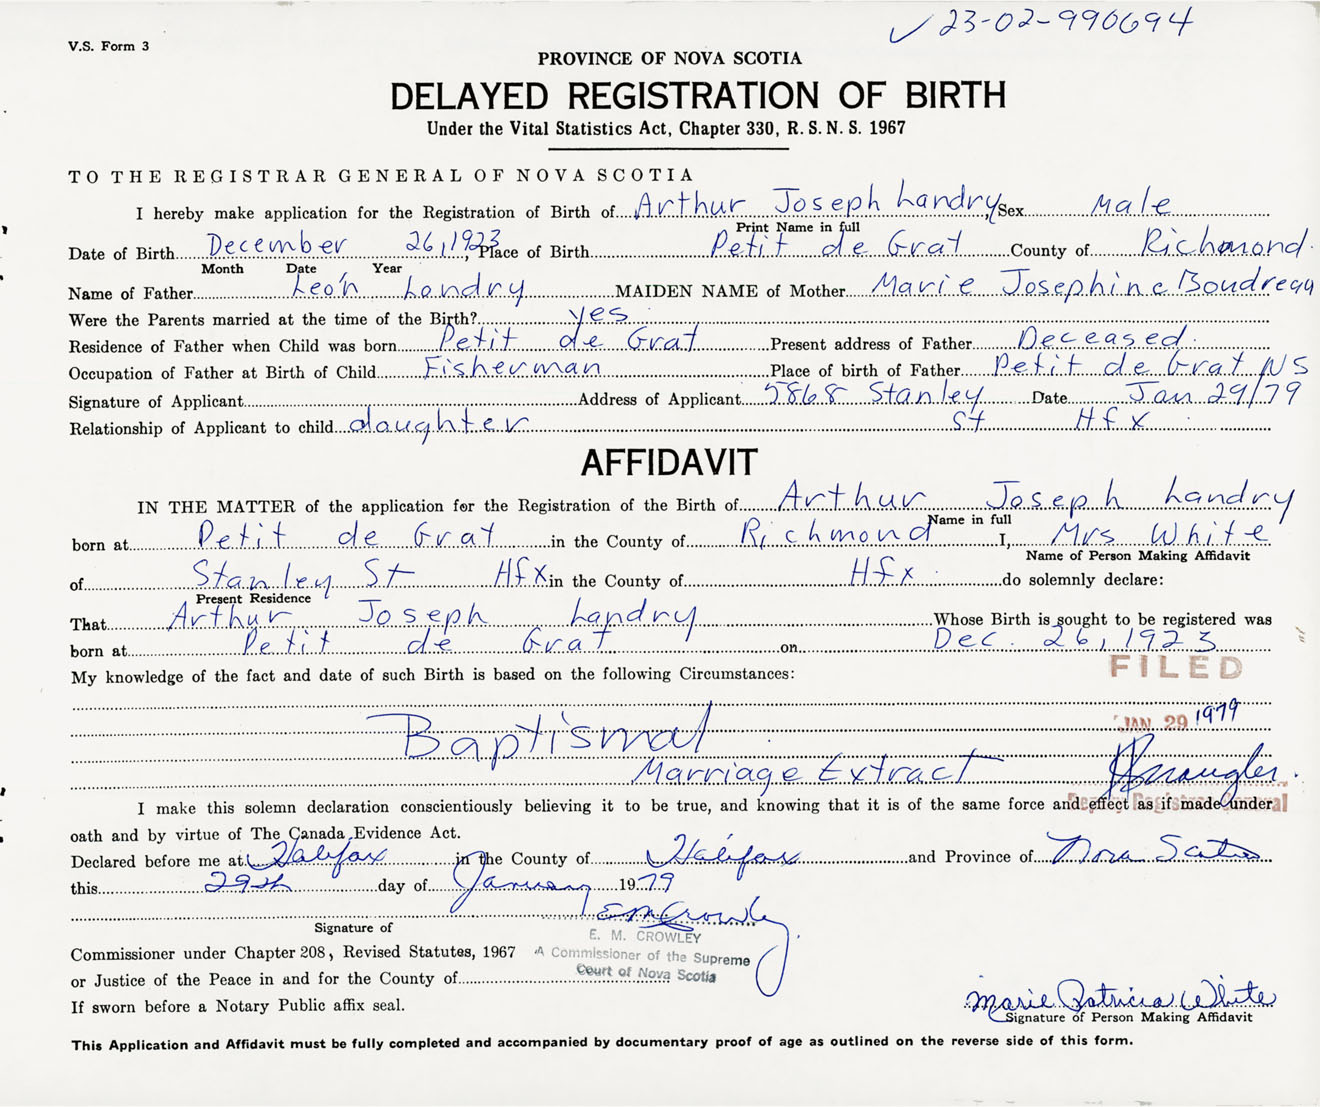 23-02-990694
V.S. Form 3
PROVINCE OF NOVA SCOTIA
DELAYED REGISTRATION OF BIRTH
Under the Vital Statistics Act, Chapter 330, R. S. N. S. 1967
TO THE REGISTRAR GENERAL OF NOVA SCOTIA
I hereby make application for the Registration of Birth of Arthur Joseph Landry, Sex Male
Print Name in full
Date of Birth December 26, 1923, Place of Birth Petit de Grat County of Richmond
Month Date Year
Name of Father Leon Landry MAIDEN NAME of Mother Marie Josephine Boudreau
Were the Parents married at the time of the Birth? yes
Residence of Father when Child was born Petit de Grat Present address of Father Deceased
Occupation of Father at Birth of Child Fisherman Place of birth of Father Petit de Grat NS
Signature of Applicant Address of Applicant 5868 Stanley Date Jan 29/79
Relationship of Applicant to child daughter St Hfx
AFFIDAVIT
IN THE MATTER of the application for the Registration of the Birth of Arthur Joseph Landry
Name in full
born at Petit de Grat in the County of Richmond I, Mrs White
Name of Person Making Affidavit
of Stanley St Hfx in the County of Hfx do solemnly declare:
Present Residence
That Arthur Joseph Landry Whose Birth is sought to be registered was
born at Petit de Grat on Dec. 26, 1923
FILED
My knowledge of the fact and date of such Birth is based on the following Circumstances:
JAN 29 1979
Baptismal
Marriage Extract
Deputy Registrar General
I make this solemn declaration conscientiously believing it to be true, and knowing that it is of the same force and effect as if made under
oath and by virtue of The Canada Evidence Act.
Declared before me at Halifax in the County of Halifax and Province of Nova Scotia
this 29th day of January 1979
E M Crowley
Signature of
E. M. CROWLEY
Commissioner under Chapter 208, Revised Statutes, 1967
A Commissioner of the Supreme
Court of Nova Scotia
or Justice of the Peace in and for the County of
If sworn before a Notary Public affix seal.
Marie Patricia White
Signature of Person Making Affidavit
This Application and Affidavit must be fully completed and accompanied by documentary proof of age as outlined on the reverse side of this form.